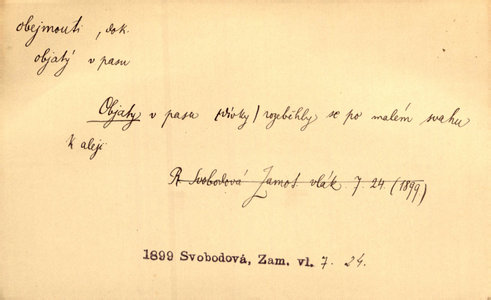 obejmouti, dok.
objatý v pasu
Objaty v pasu (dívky) rozeběhly se po malém svahu
k aleji
R Svobodová Zamot. vlák. 7. 24. (1899)
1899 Svobodová, Zam. vl. 7. 24.